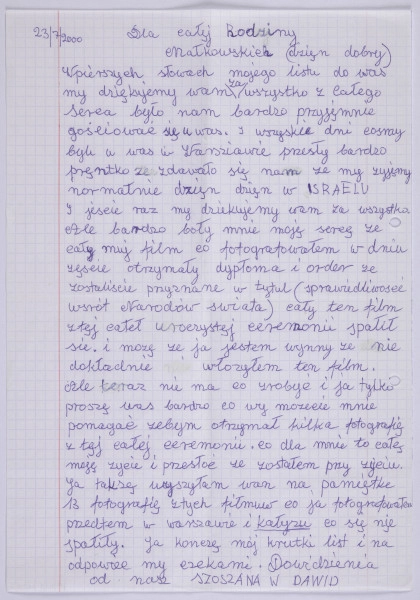 23/7/2000 Dla całej Rodziny
Małkowskich (dzięn dobry)
Wpierszych słowach mojego listu do was
my dziękujemy wam za wszystko z całego
serca było nam bardzo przyjemnie
gościować się u was. I wszyskie dni cosmy
byli u was w Warszawie przeszły bardzo
prentko ze zdawało się nam ze my zyjemy
normalnie dzięn dzięn w ISRAELU
I jescie raz my dziekujemy wam za wszystko
Ale bardzo boły mnie moję serce ze
cały muj film co fotografowałem w dniu
zęscie otrzymały dyploma i order ze
zostaliscie przyznane w tytuł (sprawiedliwoscé
wsrót Narodów swiata) cały ten film
z tej całeł uroczystej ceremonii spalił
sie. i mozę ze ja jestem wynny ze nie
dokładnie włozyłem ten film.
Ale teraz nie ma co zrobyc i ja tylko
proszę was bardzo co wy mozecie mnie
pomagać zebym otrzymał kilka fotografię
z tej całej ceremonii. co dla mnie to całę
moję zycie i przesłoć ze zostałem przy zyciu.
Ja takzę wyszytam wam na pamiętke
13 fotografię z tych filmuw co ja fotografowałem
przedtem w warszawie i Katyzu co się nie
spality. Ja konczę mój krutki list i na
odpowize my czekami. Dowidzienia
od nas SZOSZANA W DAWID